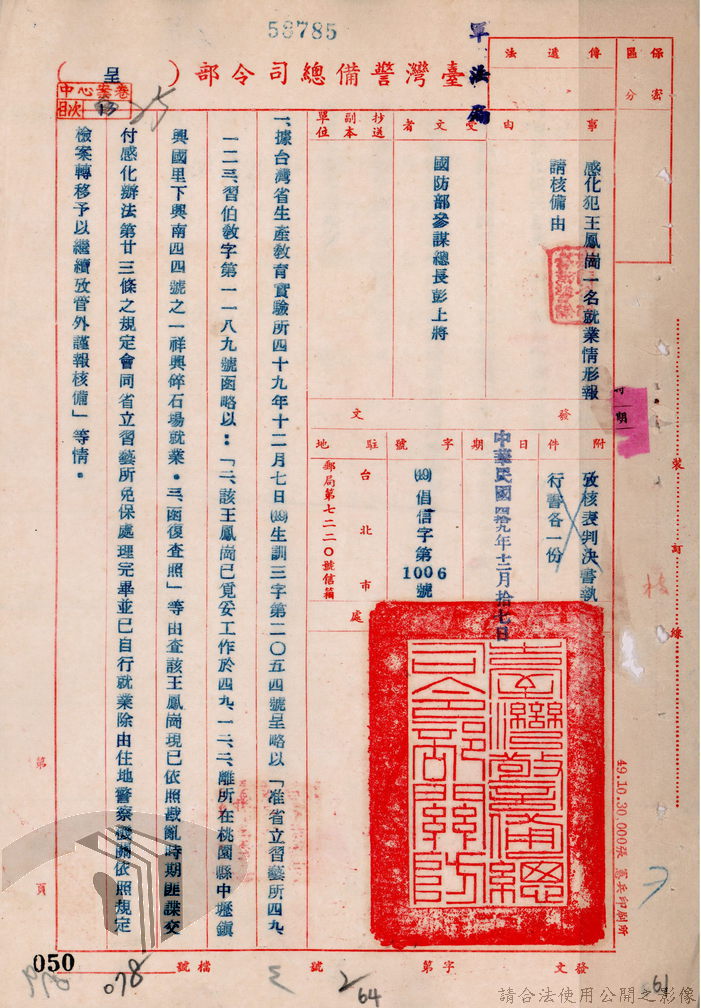 58785
軍法局
臺灣警備總司令部（呈）
卷案心中
目次
保密區分
傳遞法
事由
感化犯王鳳崗一名就業情形報
請核備由
受文者
國防部參謀總長彭上將
抄送副本單位
發文
附件
攷核表判決書執
行書各一份
日期
中華民國四十九年十二月拾七日
字號
(49)倡信字第
1006
號
駐地
台北市
郵局第七二二〇號信箱
處
臺灣警備總司令部關防
一、據台灣省生產教育實驗所四十九年十二月七日(49)生訓三字第二〇五四號呈略以「准省立習藝所四九、
一二、三、習伯敎字第一一八九號函略以：「二、該王鳳崗已覓妥工作於四九、一二、二、離所在桃園縣中壢鎮
興國里下興南四四號之一祥興碎石場就業。三、函復查照」等由查該王鳳崗現已依照戡亂時期匪諜交
付感化辦法第廿三條之規定會同省立習藝所免保處理完畢並已自行就業除由住地警察機關依照規定
檢案轉移予以繼續攷管外謹報核備」等情。
裝訂線
49.10.30.000張
第頁
050
078
發文字第號檔號
2
64
61
請合法使用公開之影像